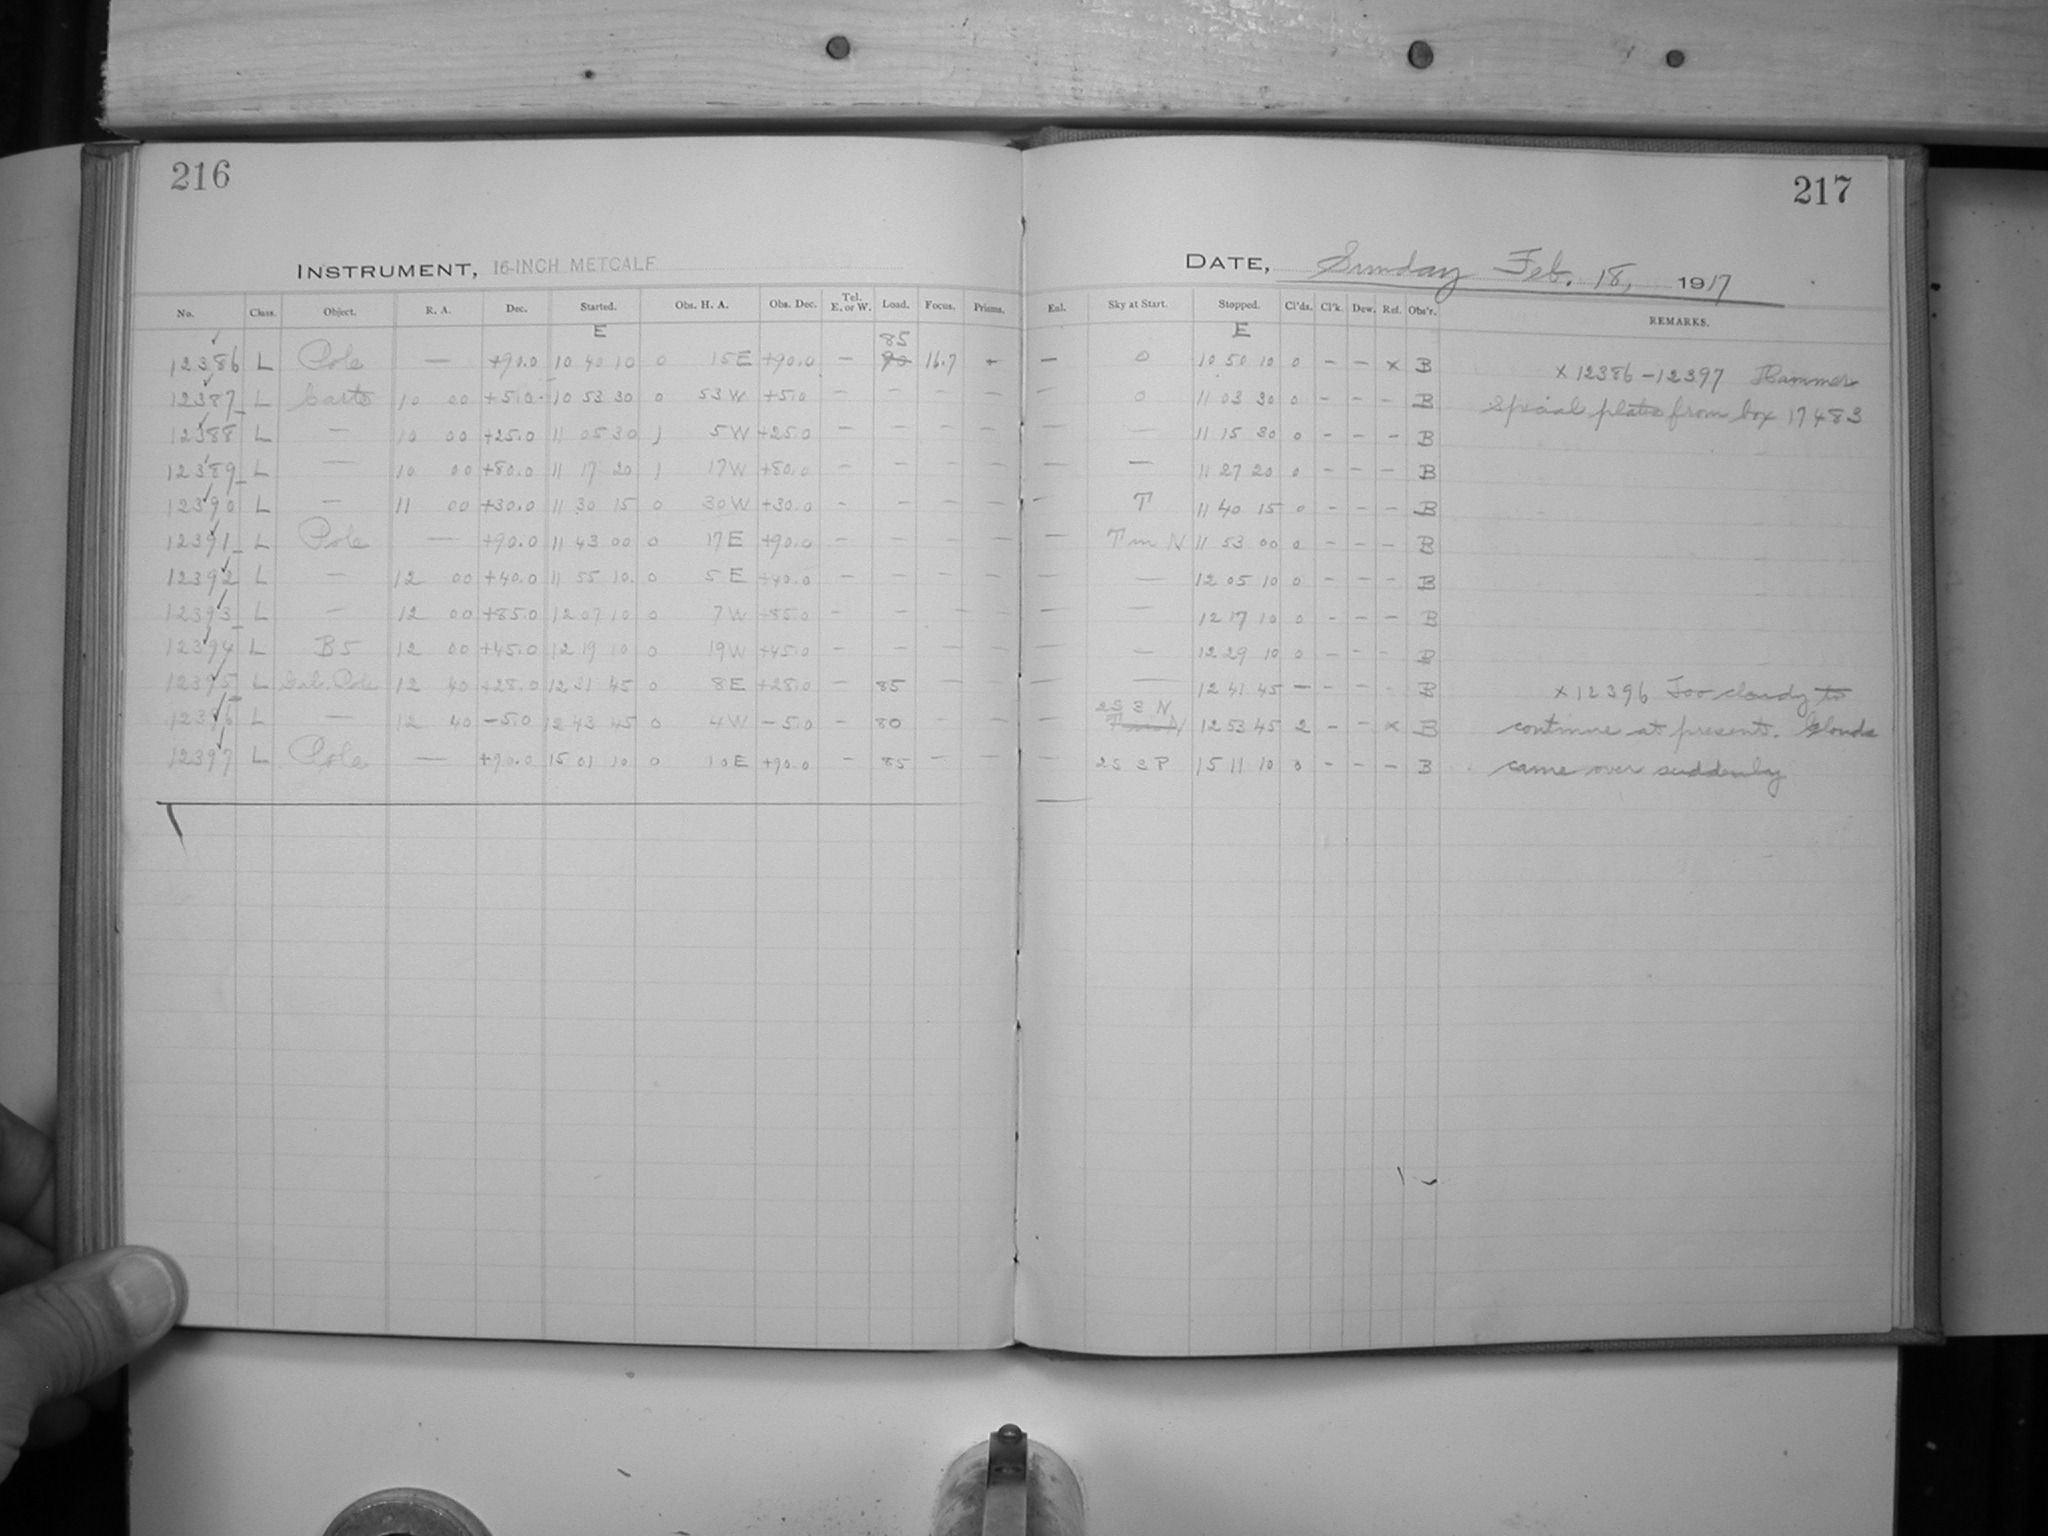 216
217
INSTRUMENT, 16-INCH METCALF
DATE, Sunday Feb. 18, 1917
No. Class. Object. R. A. Dec. Started. Obs. H. A. Obs. Dec. Tel. E. or W. Load. Focus. Prisms. Enl. Sky at Start. Stopped. Cl'ds. Cl'k. Dew. Ref. Obs'r. REMARKS.
E 85 E
12386 L Pole — +90.0 10 40 10 0 15 E +90.0 — 90 16.7 — — 0 10 50 10 0 — — x B x 12386-12397 Hammer
12387 L 10 00 +5.0 10 53 30 0 53 W +5.0 — — — — — 0 11 03 30 0 — — — B Special plates from box 17483
12388 L — 10 00 +25.0 11 05 30 5 W +25.0 — — — — — — 11 15 30 0 — — — B
12389 L — 10 00 +80.0 11 17 20 17 W +80.0 — — — — — — 11 27 20 0 — — — B
12390 L — 11 00 +30.0 11 30 15 0 30 W +30.0 — — — — — T 11 40 15 0 — — — B
12391 L Pole — +90.0 11 43 00 0 17 E +90.0 — — — — — T m N 11 53 00 0 — — — B
12392 L — 12 00 +40.0 11 55 10 0 5 E +40.0 — — — — — — 12 05 10 0 — — — B
12393 L — 12 00 +85.0 12 07 10 0 7 W +85.0 — — — — — — 12 17 10 0 — — — B
12394 L B5 12 00 +45.0 12 19 10 0 19 W +45.0 — — — — — — 12 29 10 0 — — — B
12395 L Gal. Pole 12 40 +28.0 12 31 45 0 8 E +28.0 — 85 — — — — 12 41 45 — — — — B x 12396 Too cloudy to
2S 3 N
12396 L — 12 40 -5.0 12 43 45 0 4 W -5.0 — 80 — — — 12 53 45 2 — — x B continue at present. Clouds
12397 L Pole — +90.0 15 01 10 0 10 E +90.0 — 85 — — — 2S 3 P 15 11 10 0 — — — B came over suddenly